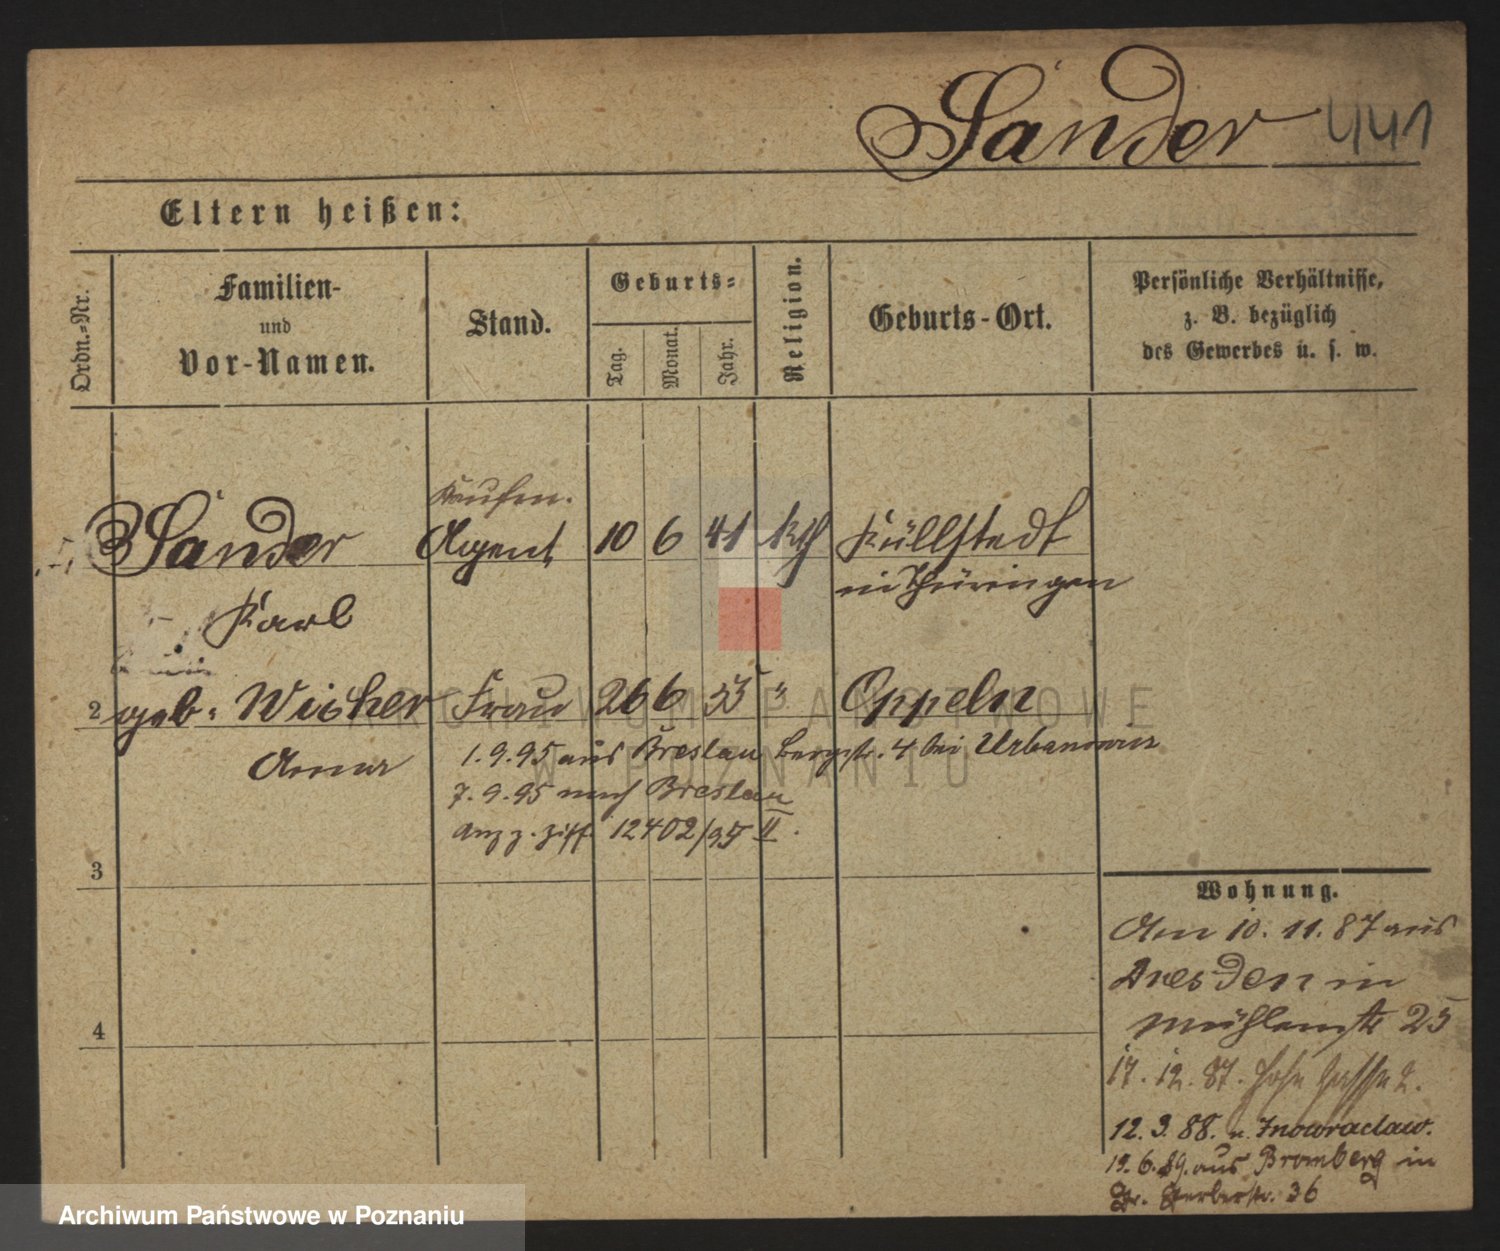 Sander 441
Eltern heißen:
Ordn.-Nr.
Familien-
und
Vor-Namen.
Stand.
Geburts-
Tag.
Monat.
Jahr.
Religion.
Geburts-Ort.
Persönliche Verhältnisse,
z. B. bezüglich
des Gewerbes u. s. w.
Kaufm.
Sander Agent 10 6 41 kth Küllstedt
in Thüringen
Karl
2 geb. Wicher Frau 26 6 55 " Oppeln
Anna
1.9.95 aus Breslau Bergstr. 4 bei Urbanowicz
7.9.95 nach Breslau
12402/95 II.
3
4
Wohnung.
Am 10. 11. 87 aus
Dresden in
Mühlenstr 25
17. 12. 87. Hohe Gasse 2.
12. 3. 88. n. Inowraclaw.
19. 6. 89. aus Bromberg in
Gr. Gerberstr. 36
ARCHIWUM PAŃSTWOWE
W POZNANIU
Archiwum Państwowe w Poznaniu